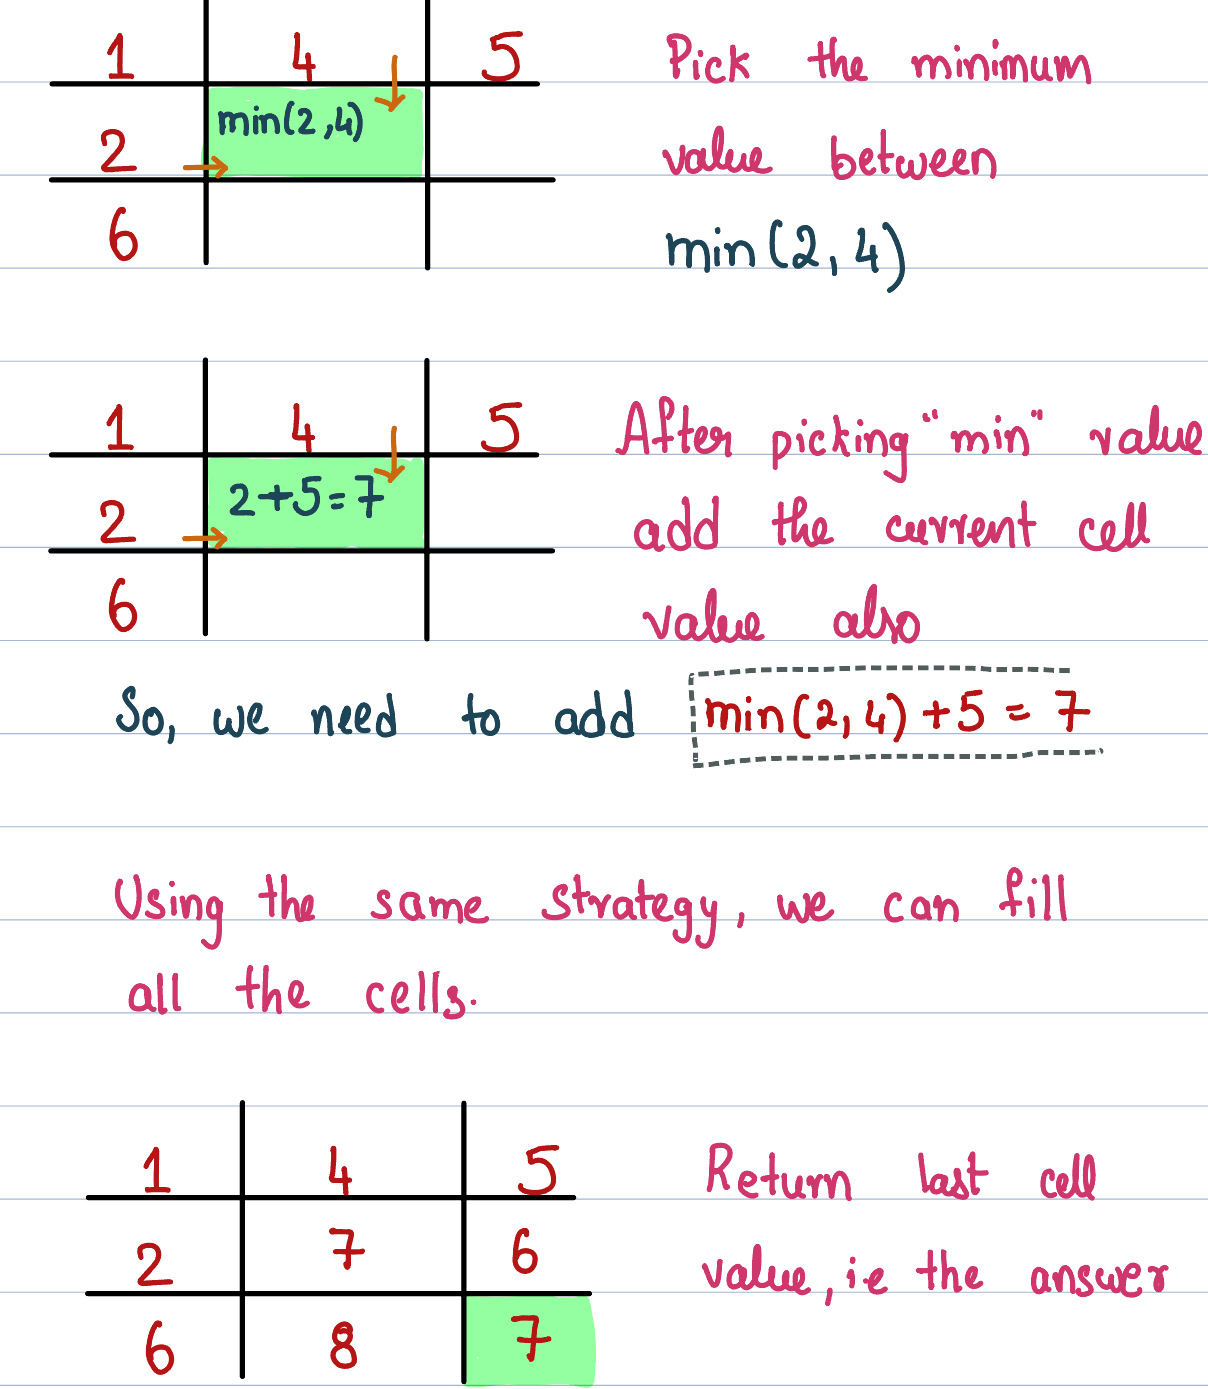 1 4 5
Pick the minimum
min(2,4)
2
value between
6
min(2,4)
1 4 5
After picking "min" value
2+5=7
2
add the current cell
6
value also
So, we need to add min(2,4)+5 = 7
Using the same strategy, we can fill
all the cells.
1 4 5
Return last cell
2 7 6
value, ie the answer
6 8 7